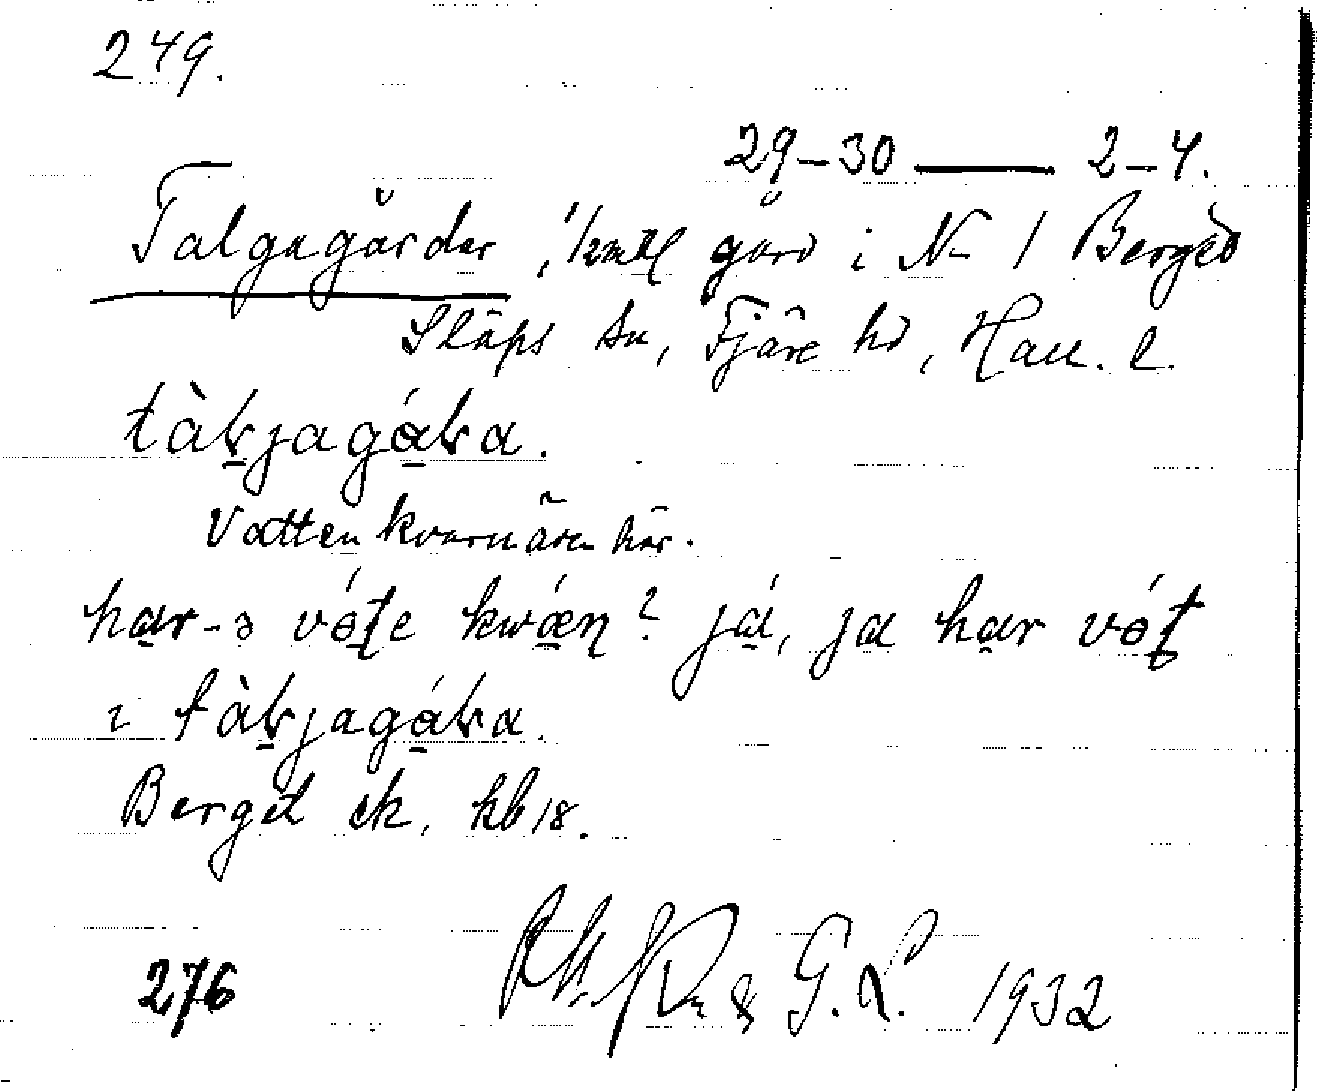 249.
29-30 — 2-4.
Talgagårdar, 1/2 mtl gård i No 1 Berget
Släps sn, Fjäre hd, Hall. l.
tàʟjagáʟa.
Vattenkvarnären här.
har-ə vóte kwǽn? já, ja har vót
ɩ tàʟjagáʟa.
Berget ek. kb 18.
276 & G. L. 1932